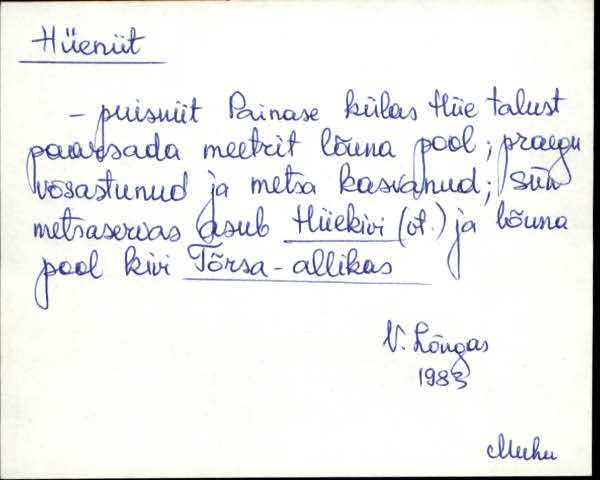 Hüeniit
- puisniit Painase külas Hüe talust
paarsada meetrit lõuna pool; praegu
võsastunud ja metsa kasvanud; siin
metsaservas asub Hüekivi (vt.) ja lõuna
pool kivi Tõrsa-allikas
V. Lõugas
1983
Muhu